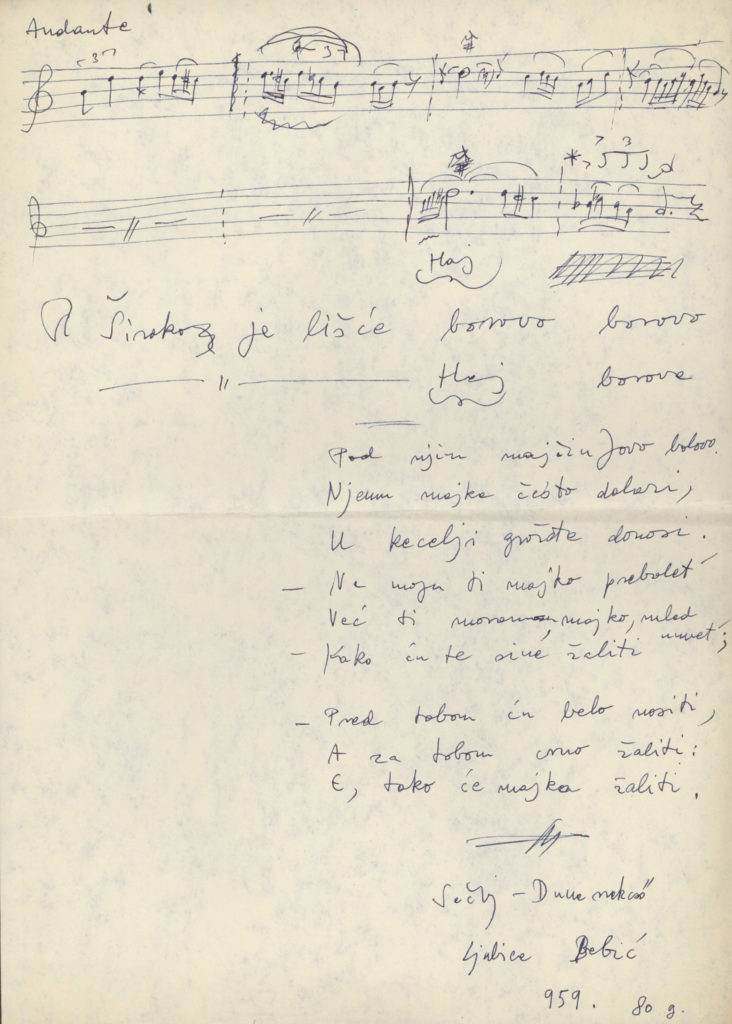 Andante
3
3
3
Haj
Široko je lišće borovo borovo
— " — Haj borovo
Pod njim majčin Jovo bolovo.
Njemu majka često dolazi,
U kecelji grožđe donosi.
– Ne mogu ti majko prebolet
Već ti moram, majko, mlad umret;
– Kako ću te sine žaliti
– Pred tobom ću belo nositi,
A za tobom crno žaliti:
E, tako će majka žaliti.
Ljubica Babić
959. 80 g.